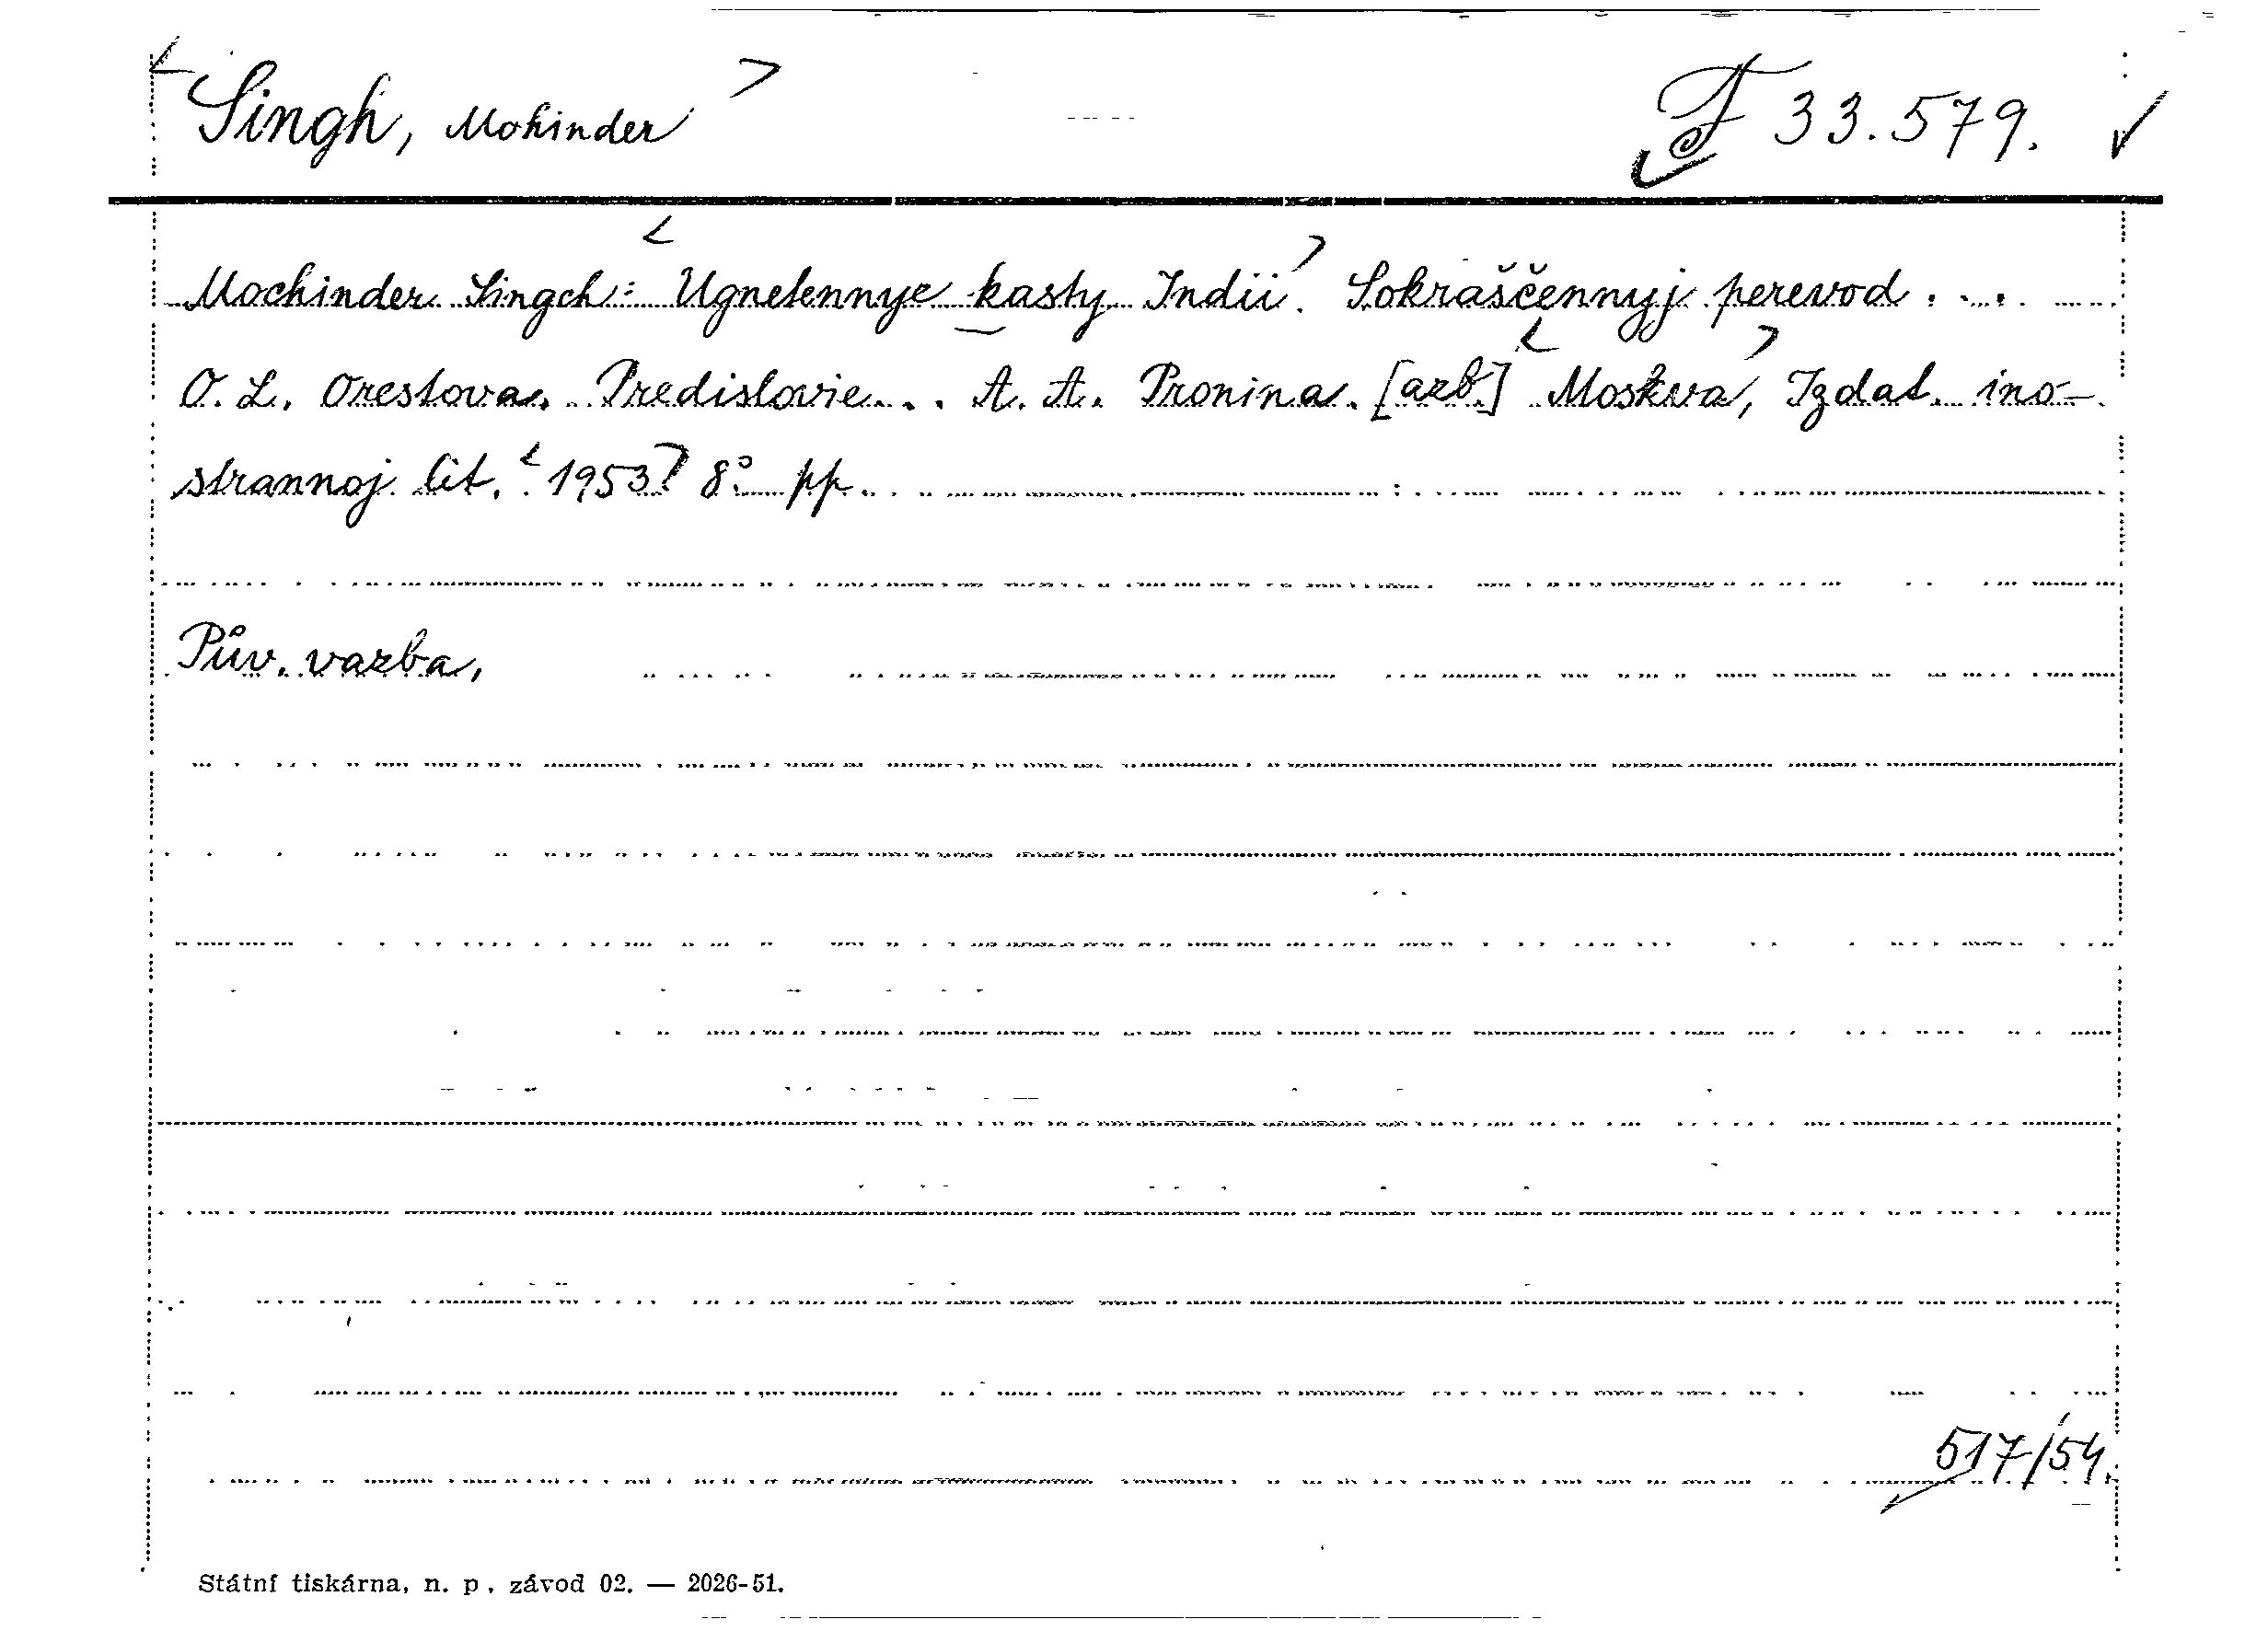 <Singh, Mohinder> F 33.579. ✓
Mochinder Singch: <Ugnetennye kasty Indii>. Sokraščennyj perevod . . .
O. L. Orestova. Predislovie . . A. A. Pronina. [azb.] <Moskva>, Izdat. ino-
strannoj lit. <1953> 8° pp.
Pův. vazba,
517/54.
Státní tiskárna, n. p. závod 02. — 2026-51.